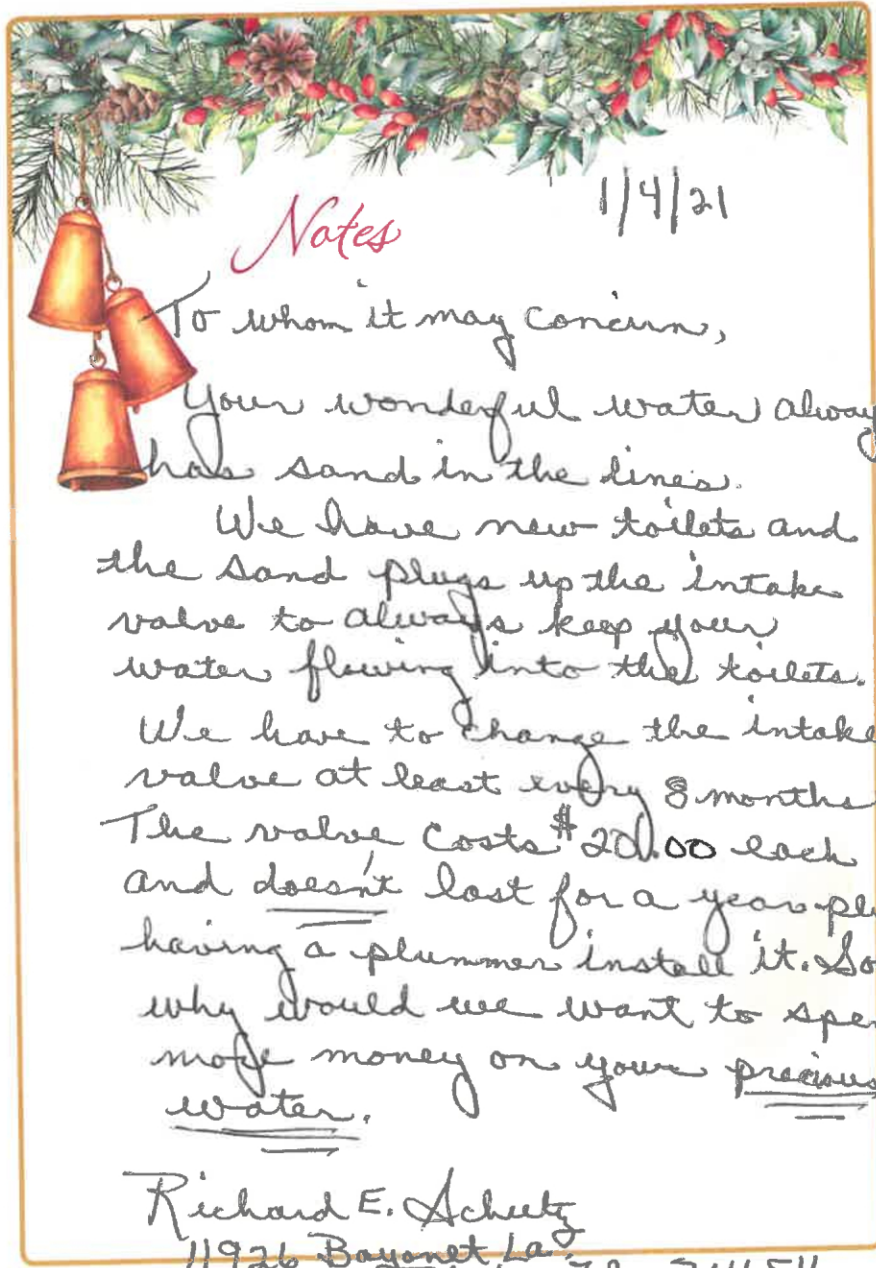 Notes
1/4/21
To whom it may concern,
Your wonderful water alway
has sand in the lines.
We have new toilets and
the sand plugs up the intake
valve to always keep your
water flowing into the toilets.
We have to change the intake
valve at least every 8 months
The valve costs $20.00 each
and doesn't last for a year plu
having a plummer install it. So
why would we want to spen
more money on your precious
water.
Richard E. Schultz
11926 Bayonet La.